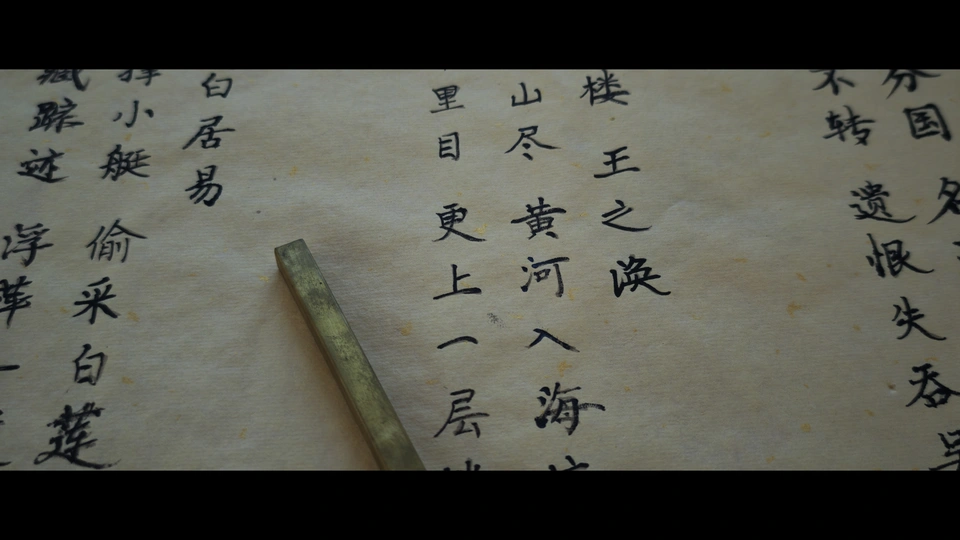 分国 名
不转 遗恨失吞吴
楼 王之涣
山尽 黄河入海
里目 更上一层
白居易
撑小艇 偷采白莲
藏踪迹 浮萍一